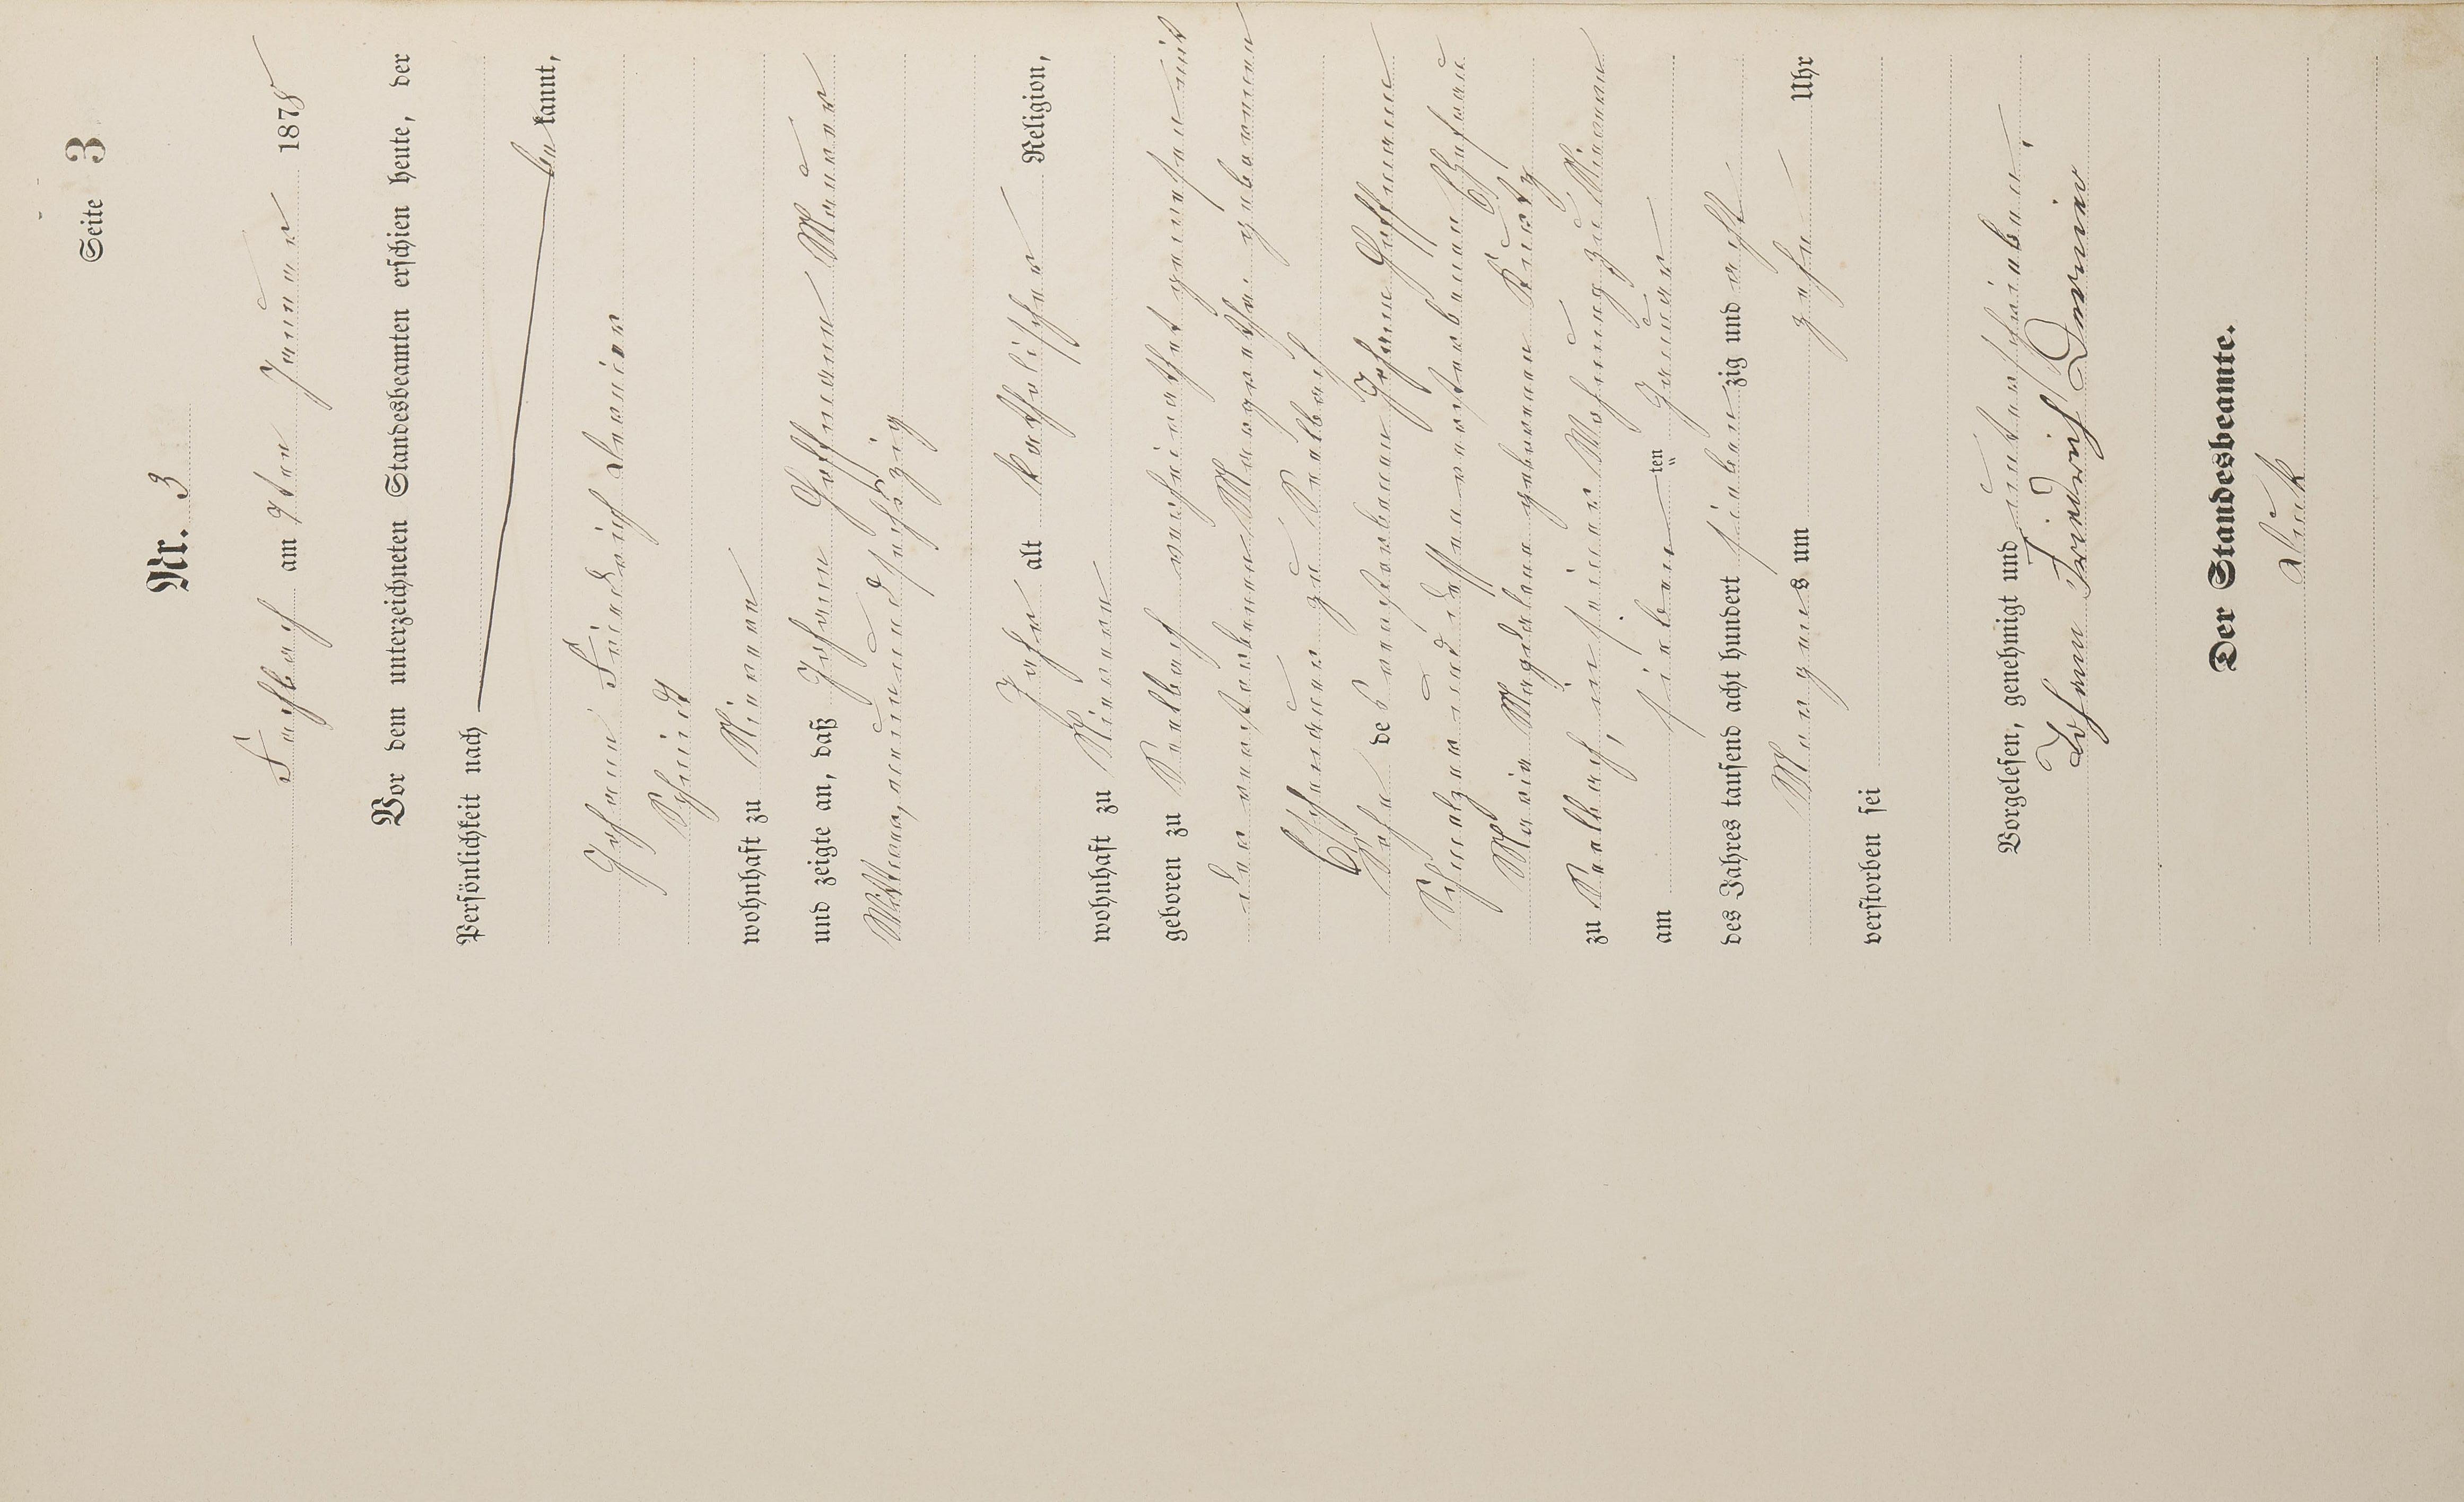 Seite 3
Nr. 3
Fachbach am 9ten Januar 1878
Vor dem unterzeichneten Standesbeamten erschien heute, der
Persönlichkeit nach
bekannt,
Johann Friedrich
Schmidt
wohnhaft zu Nievern
und zeigte an, daß Johann Hoffmann Maurer
Wittwer, neunundsechszig
Jahre alt katholischer Religion,
wohnhaft zu Nievern
geboren zu Seelbach verheirathet gewesen mit
der verstorbenen Margarethe geborenen
zu Seelbach
Sohn des verstorbenen Johann Hoffmann
und dessen verstorbenen Ehefrau
Maria Magdalena geborenen Kurtz
zu Seelbach, in seiner Wohnung zu Nievern
am sieben ten Januar
des Jahres tausend acht hundert siebenzig und acht
Morgens um zehn Uhr
verstorben sei
Vorgelesen, genehmigt und unterschrieben.
Johann Friedrich
Der Standesbeamte.